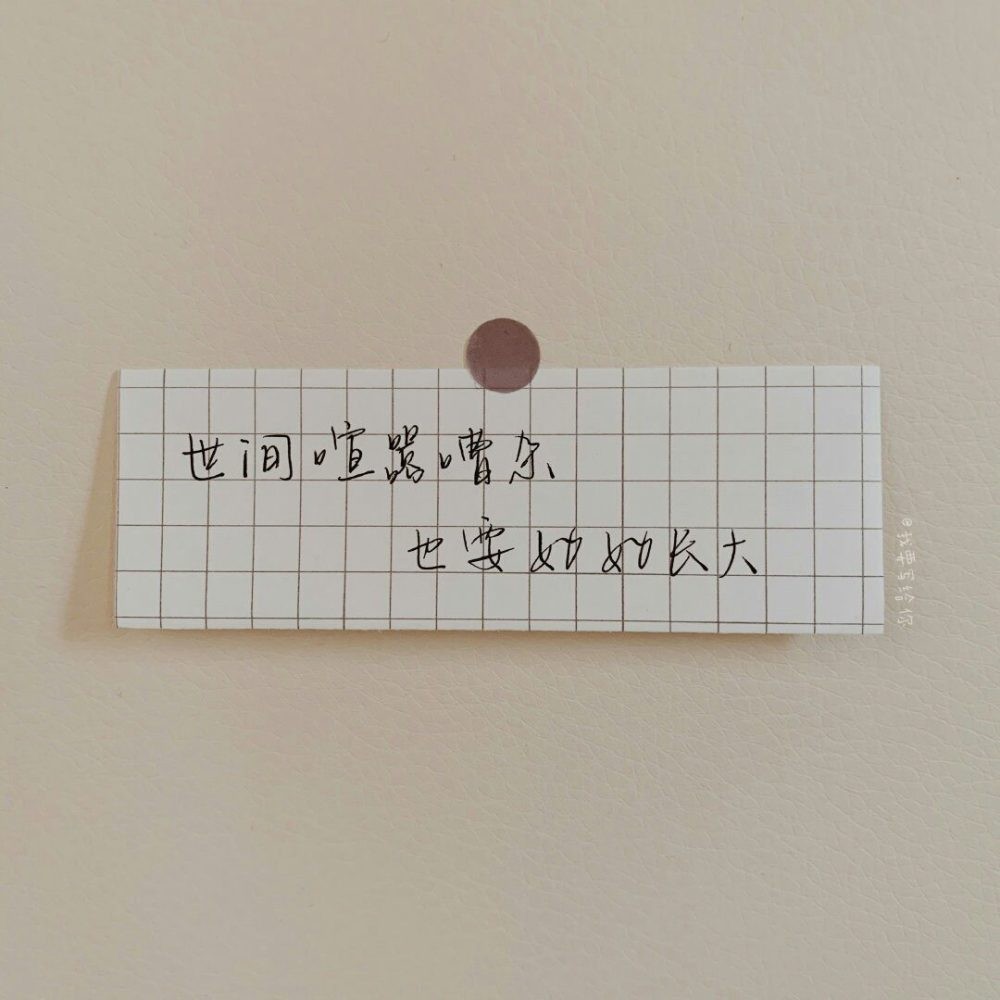 世间喧嚣嘈杂
也要好好长大
@我要写给你